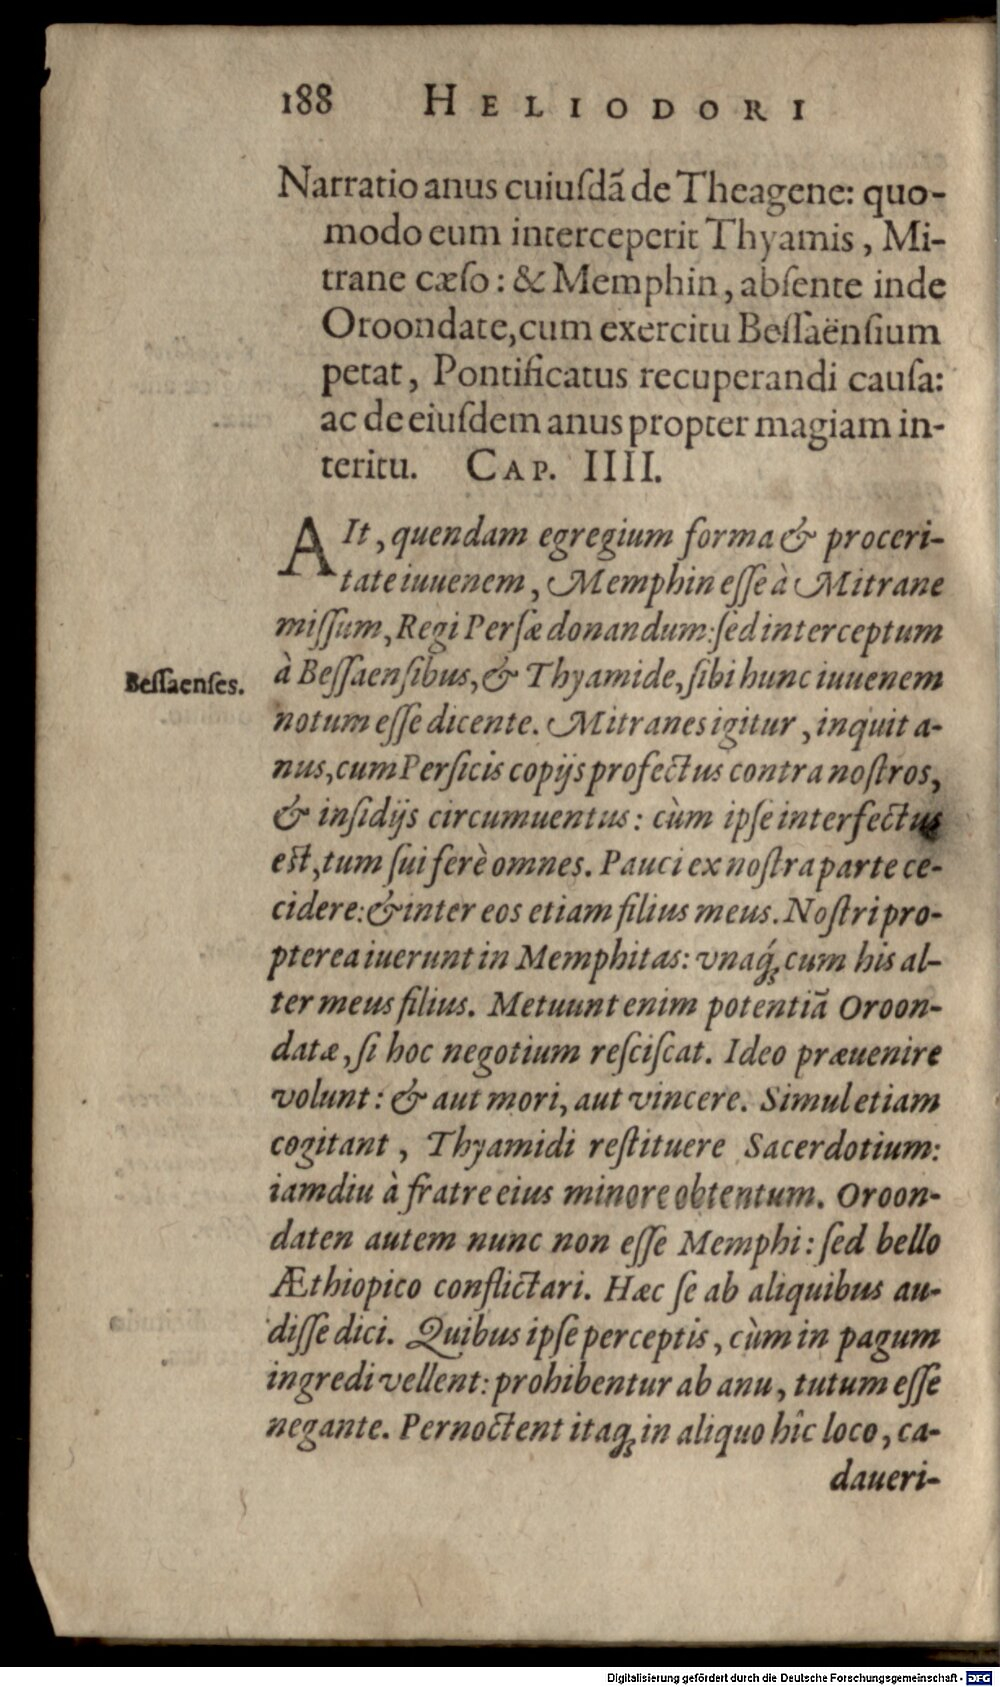 188 HELIODORI
Narratio anus cuiuſdã de Theagene: quo-
modo eum interceperit Thyamis, Mi-
trane cæſo: & Memphin, abſente inde
Oroondate, cum exercitu Beſſaënſium
petat, Pontificatus recuperandi cauſa:
ac de eiuſdem anus propter magiam in-
teritu. CAP. IIII.
AIt, quendam egregium forma & proceri-
tate iuuenem, Memphin eſſe à Mitrane
miſſum, Regi Perſæ donandum: ſed interceptum
Beſſaenſes.
à Beſſaenſibus, & Thyamide, ſibi hunc iuuenem
notum eſſe dicente. Mitranes igitur, inquit a-
nus, cum Perſicis copijs profectus contra noſtros,
& inſidijs circumuentus: cùm ipſe interfectus
eſt, tum ſui ferè omnes. Pauci ex noſtra parte ce-
cidere: & inter eos etiam filius meus. Noſtri pro-
pterea iuerunt in Memphitas: vnaq́; cum his al-
ter meus filius. Metuunt enim potentiã Oroon-
datæ, ſi hoc negotium reſciſcat. Ideo præuenire
volunt: & aut mori, aut vincere. Simul etiam
cogitant, Thyamidi reſtituere Sacerdotium:
iamdiu à fratre eius minore obtentum. Oroon-
daten autem nunc non eſſe Memphi: ſed bello
Æthiopico conflictari. Hæc ſe ab aliquibus au-
diſſe dici. Quibus ipſe perceptis, cùm in pagum
ingredi vellent: prohibentur ab anu, tutum eſſe
negante. Pernoctent itaq; in aliquo hîc loco, ca-
daueri-
Digitalisierung gefördert durch die Deutsche Forschungsgemeinschaft - DFG